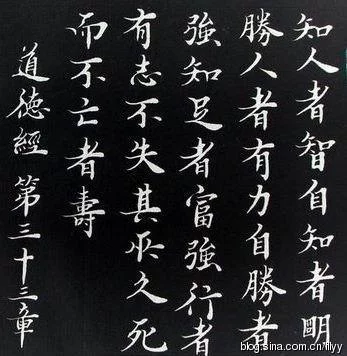 知人者智自知者明
勝人者有力自勝者
強知足者富強行者
有志不失其所久死
而不亡者壽
道德經 第三十三章